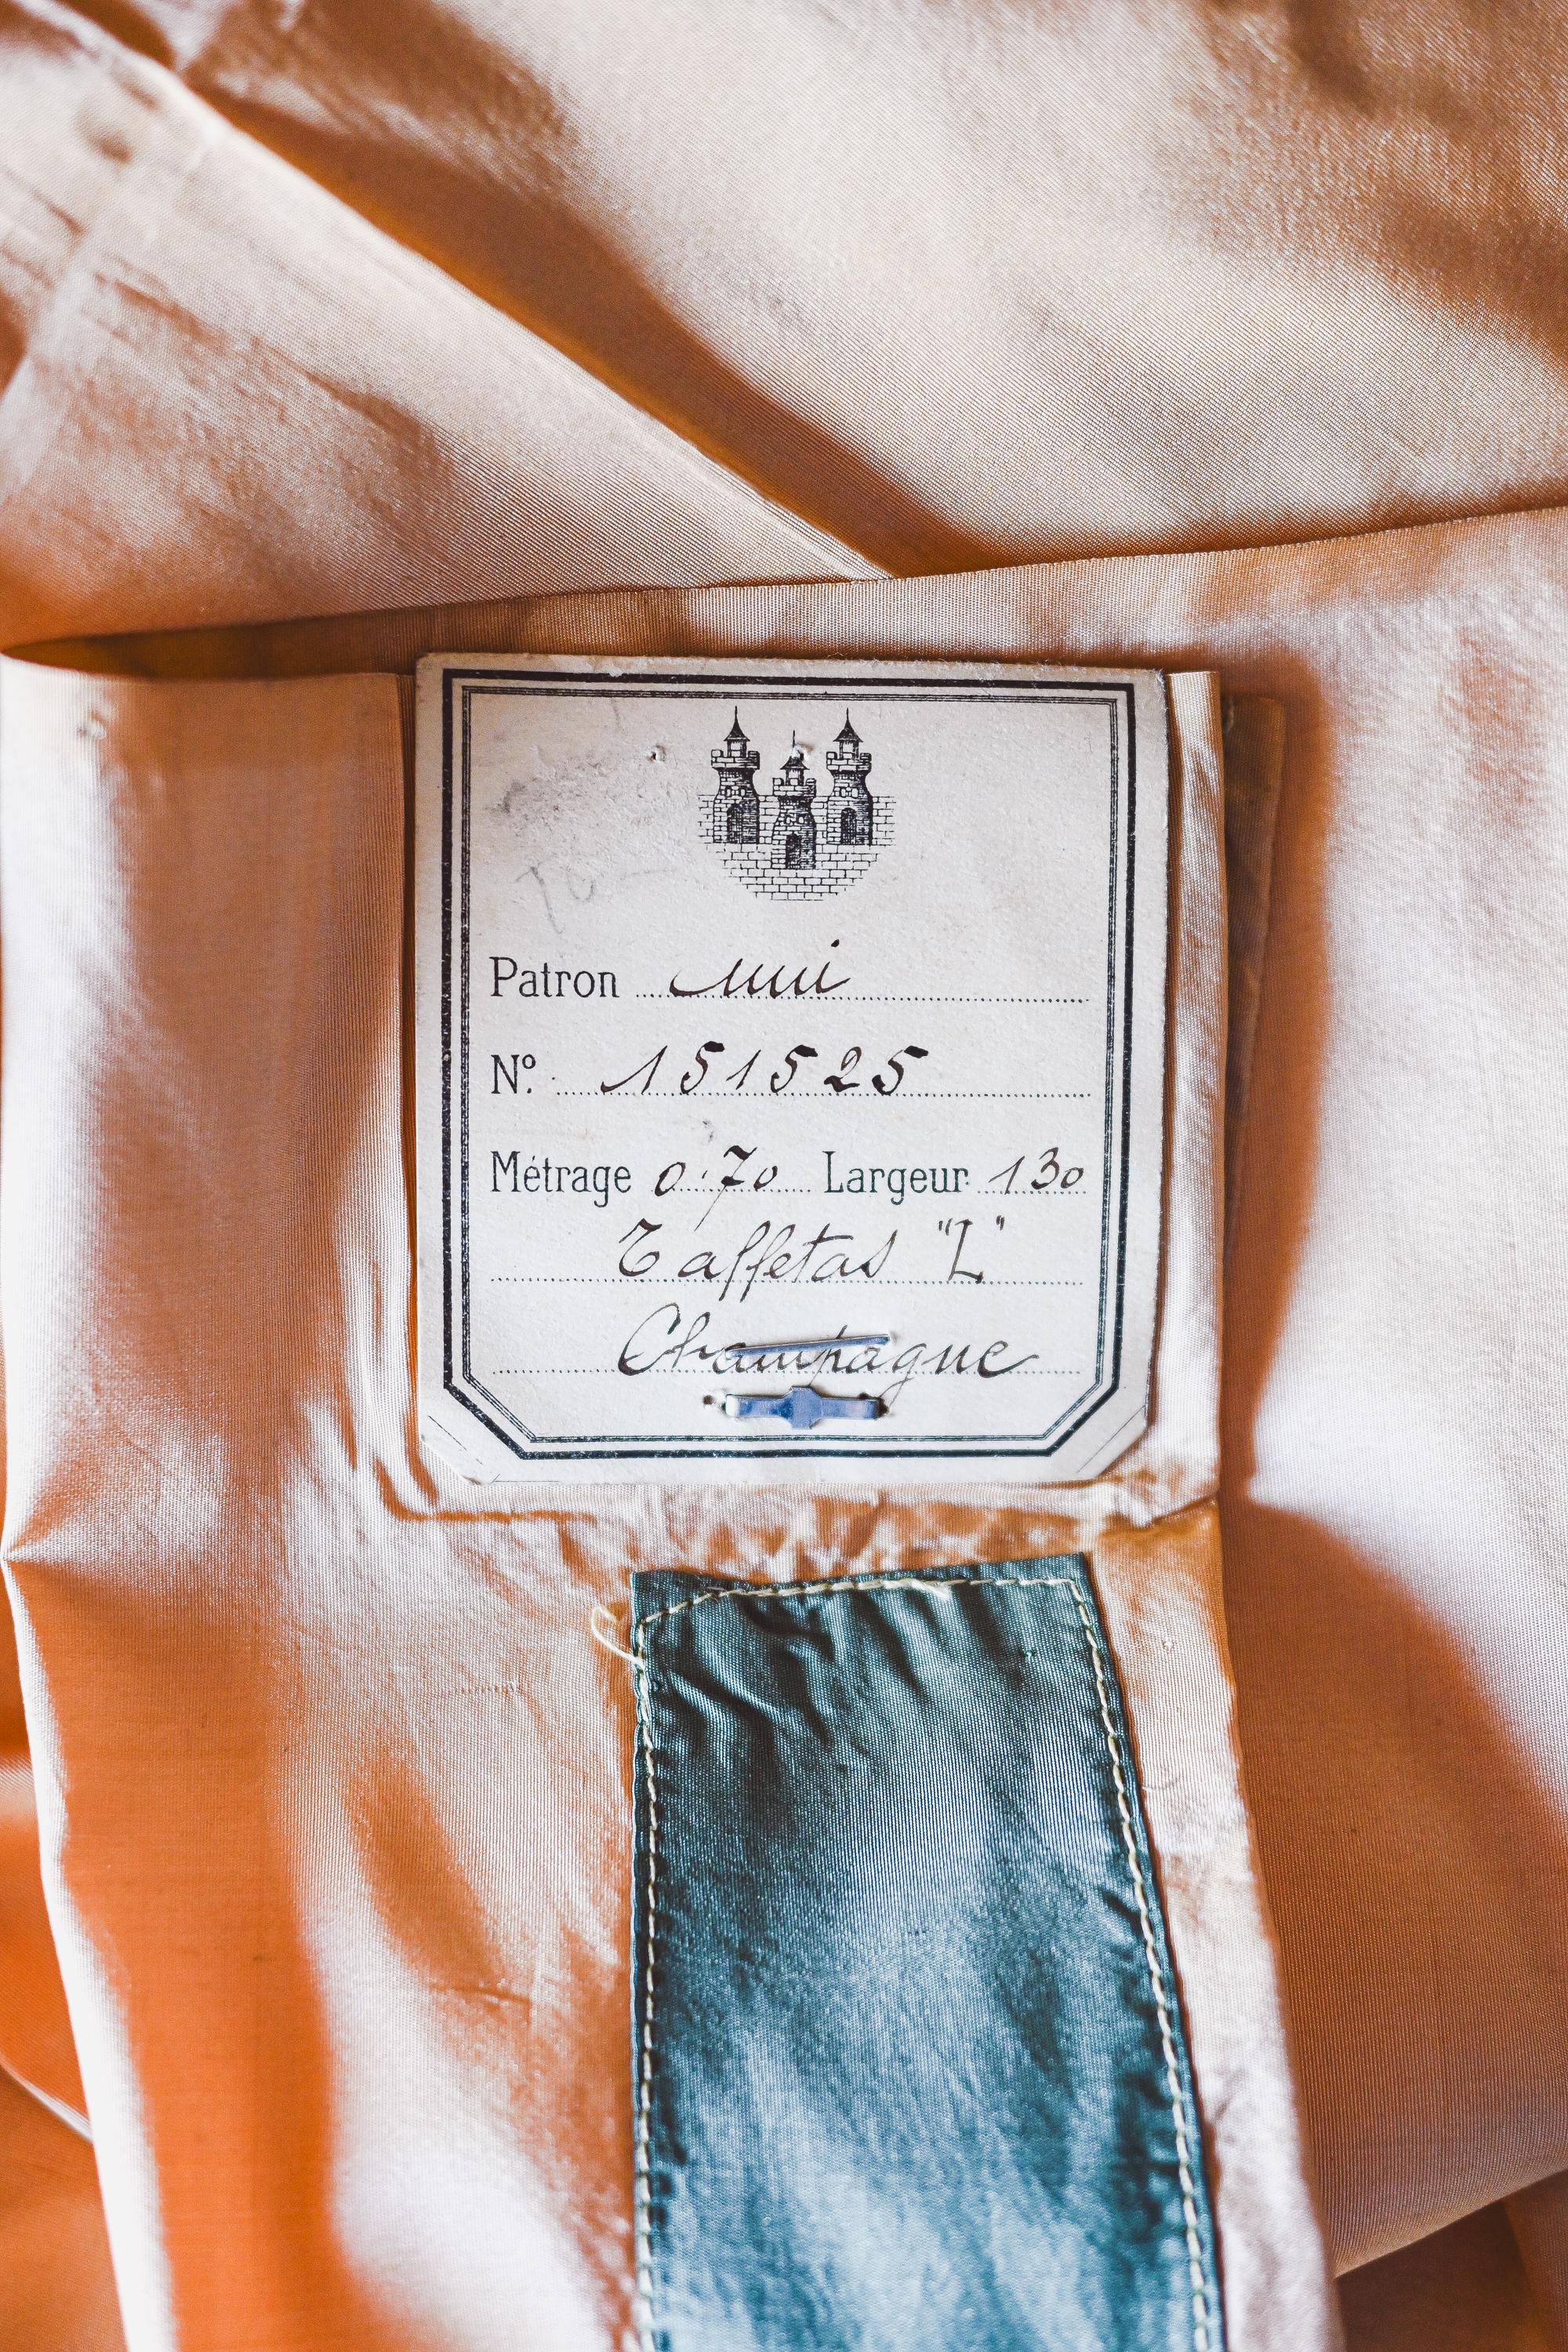 Patron uni
Nº. 151525
Métrage 0.70 Largeur 130
Taffetas "L"
Champagne